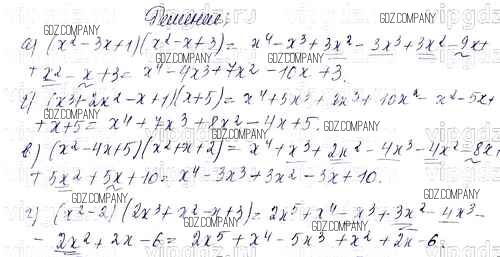 Решение:
а) (x² - 3x + 1)(x² - x + 3) = x⁴ - x³ + 3x² - 3x³ + 3x² - 9x +
+ x² - x + 3 = x⁴ - 4x³ + 7x² - 10x + 3.
б) (x³ + 2x² - x + 1)(x + 5) = x⁴ + 5x³ + 2x³ + 10x² - x² - 5x +
+ x + 5 = x⁴ + 7x³ + 8x² - 4x + 5.
в) (x² - 4x + 5)(x² + x + 2) = x⁴ + x³ + 2x² - 4x³ - 4x² - 8x +
+ 5x² + 5x + 10 = x⁴ - 3x³ + 3x² - 3x + 10.
г) (x² - 2)(2x³ + x² - x + 3) = 2x⁵ + x⁴ - x³ + 3x² - 4x³ -
- 2x² + 2x - 6 = 2x⁵ + x⁴ - 5x³ + x² + 2x - 6.
GDZ.COMPANY
GDZ.COMPANY
GDZ.COMPANY
GDZ.COMPANY
GDZ.COMPANY
GDZ.COMPANY
GDZ.COMPANY
GDZ.COMPANY
GDZ.COMPANY
GDZ.COMPANY
GDZ.COMPANY